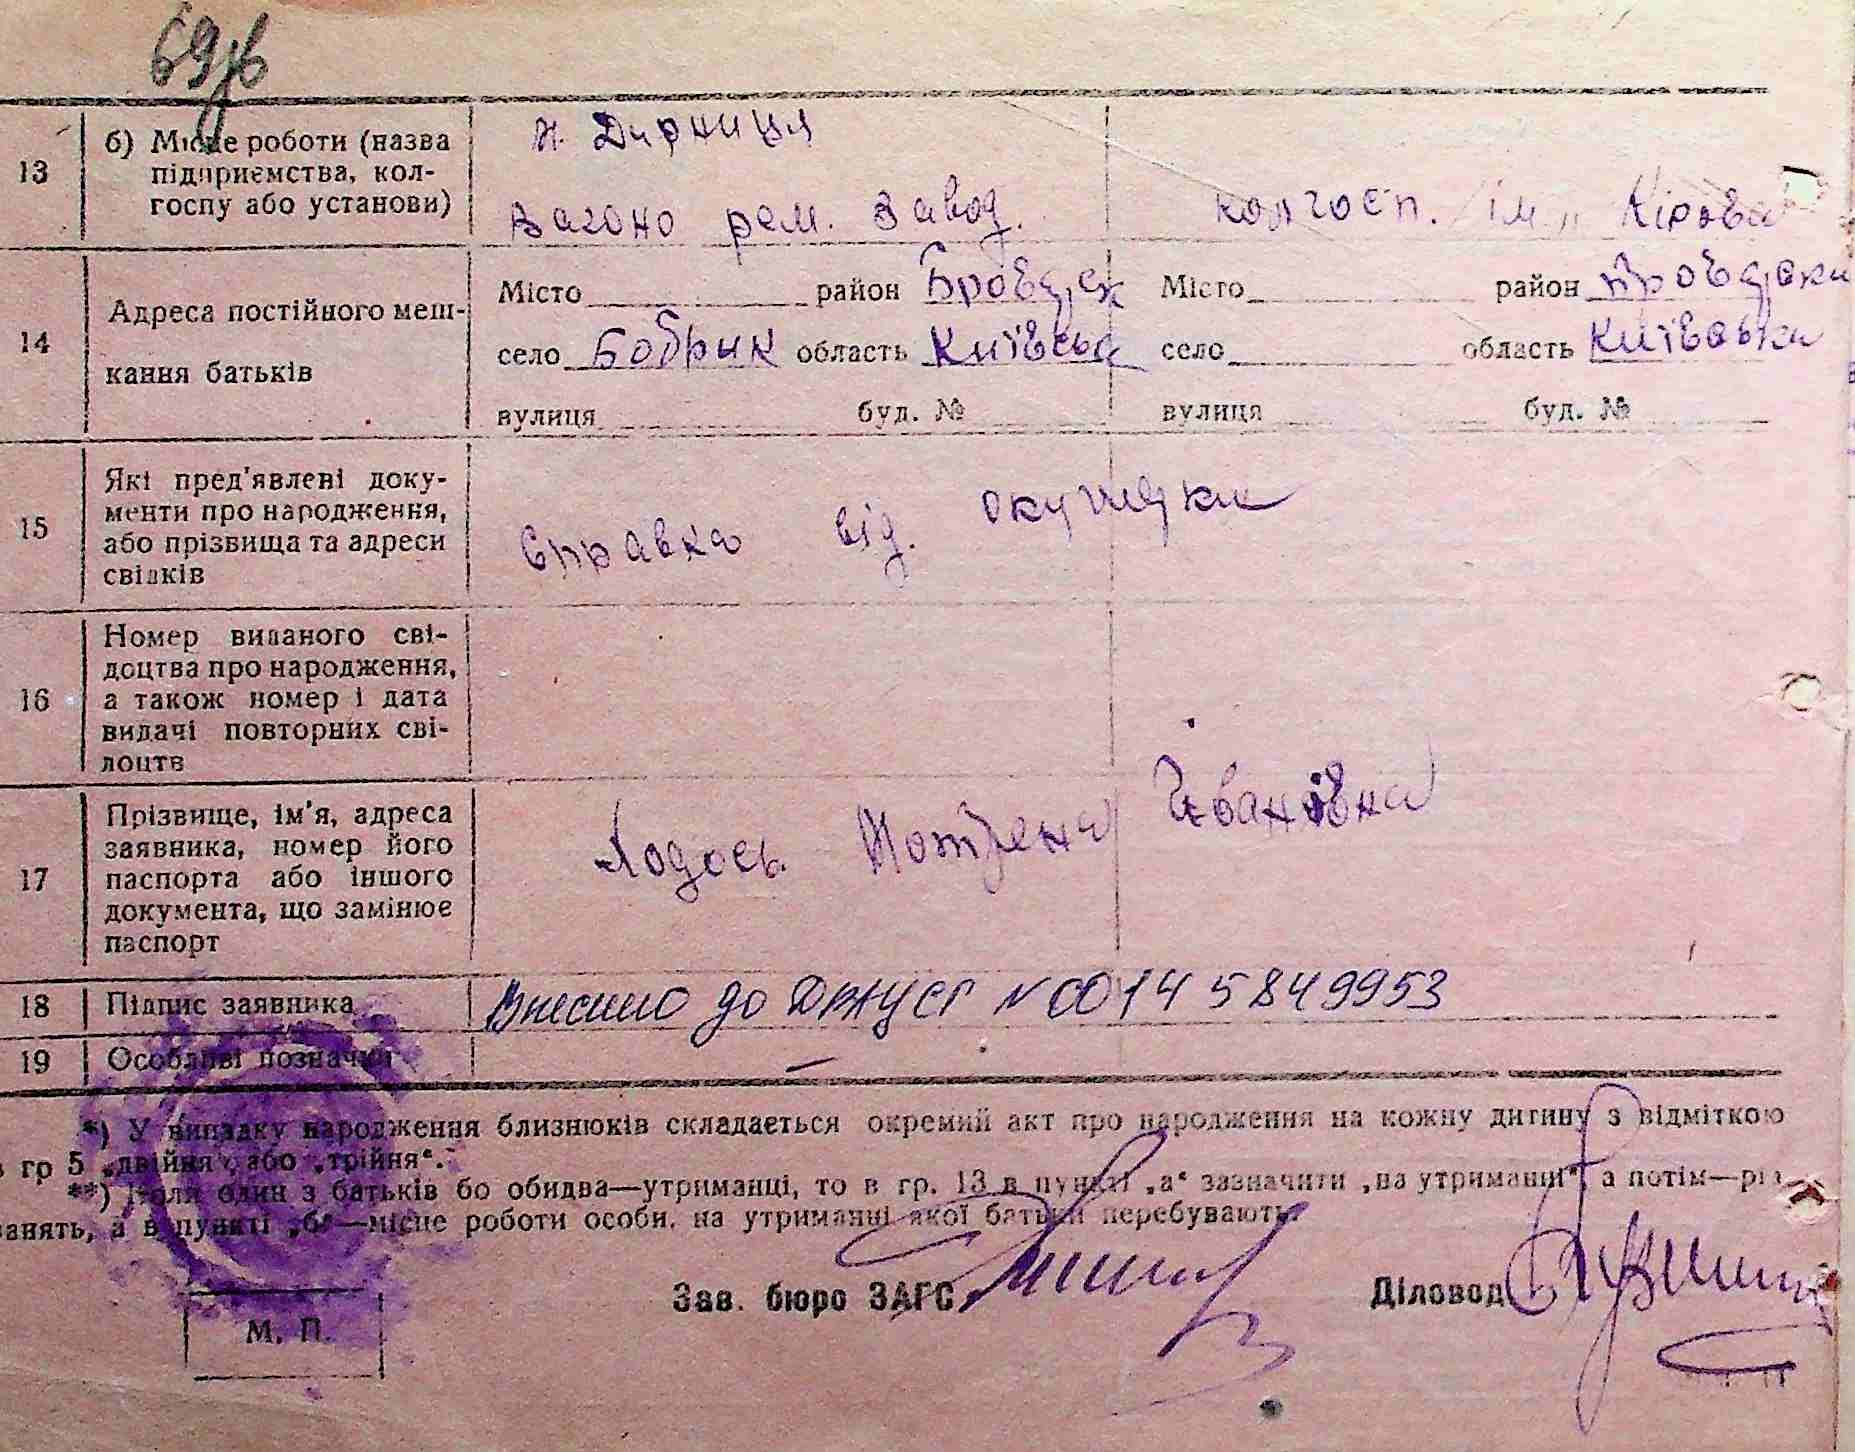 69зв
13
б) Місце роботи (назва
підприємства, кол-
госпу або установи)
н. Дирниця
Вагоно рем. завод.
колгосп. ім. Кірова
14
Адреса постійного меш-
кання батьків
Місто район Бровар.
село Бобрик область Київська
вулиця буд. №
Місто район Броварськи
село область Київська
вулиця буд. №
15
Які пред'явлені доку-
менти про народження,
або прізвища та адреси
свідків
Справка від. окушерки
16
Номер виданого сві-
доцтва про народження,
а також номер і дата
видачі повторних сві-
доцтв
17
Прізвище, ім'я, адреса
заявника, номер його
паспорта або іншого
документа, що замінює
паспорт
Лодось Мотрена Івановна
18
Підпис заявника
Внесено до ДРАЦСГ N 00145849953
19
Особливі позначки
—
*) У випадку народження близнюків складається окремий акт про народження на кожну дитину з відміткою
в гр 5 „двійня“ або „трійня“.
**) Коли один з батьків бо обидва—утриманці, то в гр. 13 в пункті „а“ зазначити „на утриманні“, а потім—рід
занять, а в пункті „б“—місце роботи особи, на утриманні якої батьки перебувають.
Зав. бюро ЗАГС
Діловод
М. П.